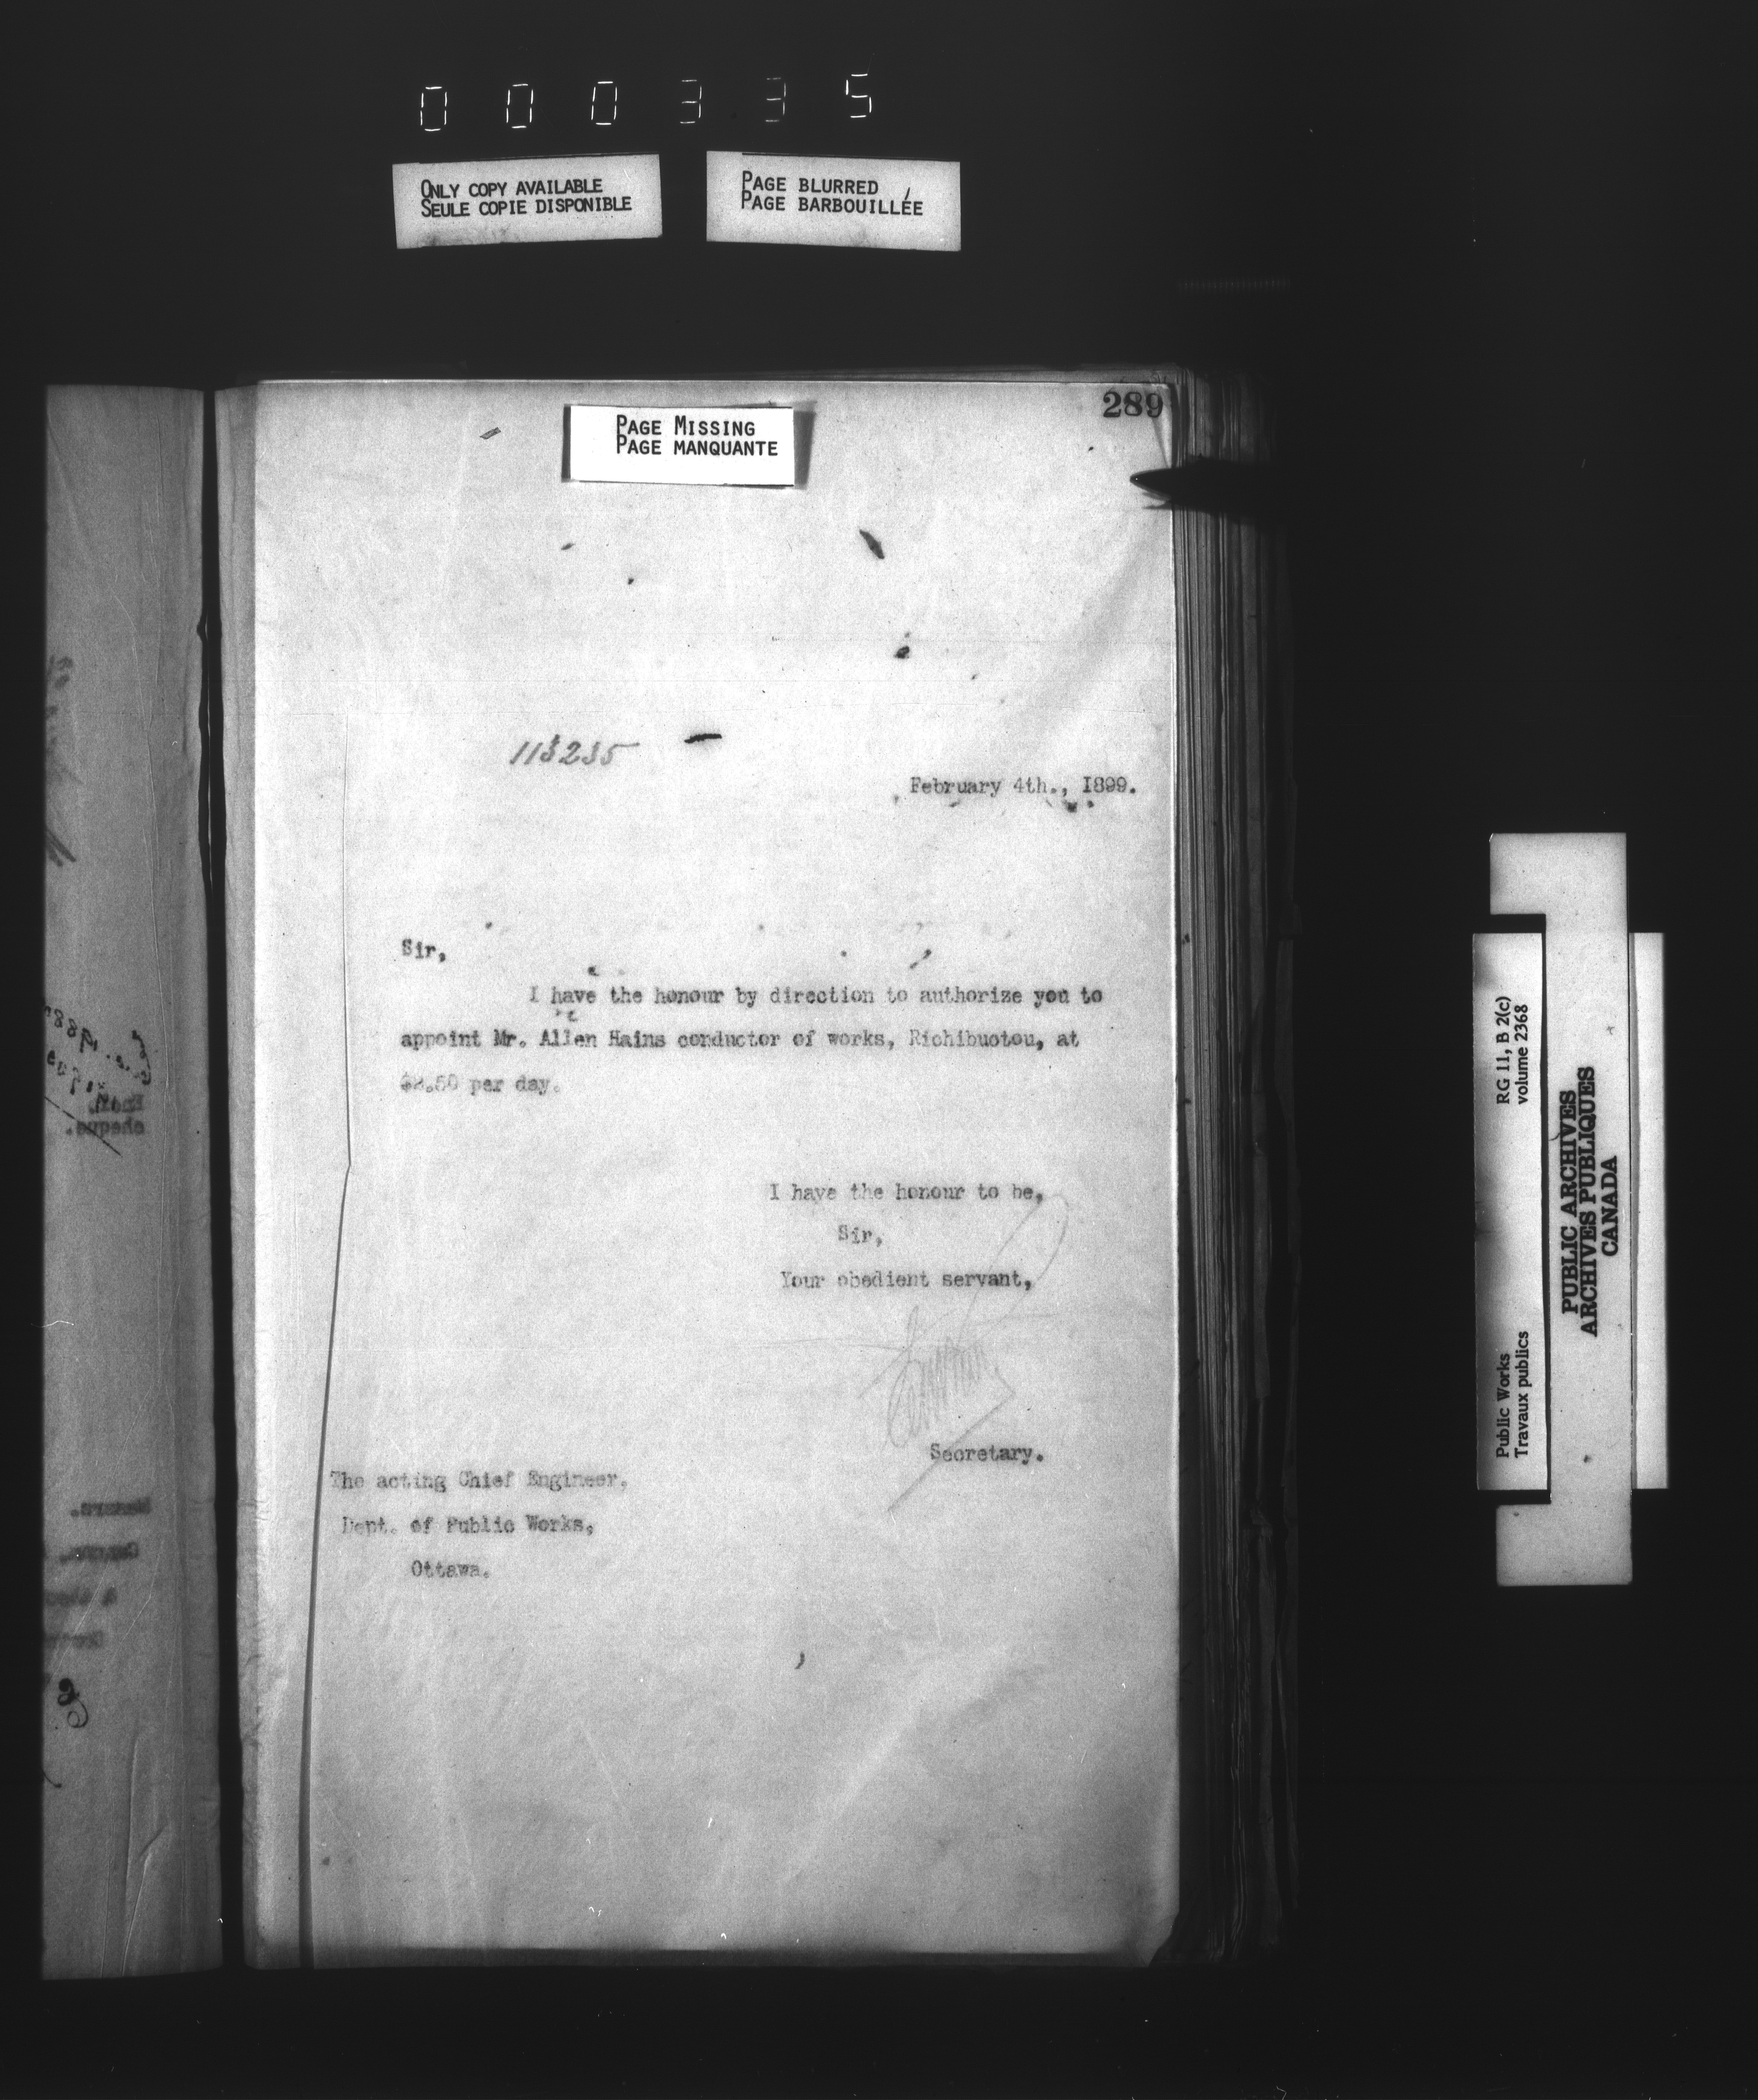 000335
ONLY COPY AVAILABLE
SEULE COPIE DISPONIBLE
PAGE BLURRED
PAGE BARBOUILLÉE
289
PAGE MISSING
PAGE MANQUANTE
February 4th., I899.
Sir,
I have the honour by direction to authorize you to
appoint Mr. Allen Hains conductor of works, Richibuctou, at
$2.50 per day.
I have the honour to be,
Sir,
Your obedient servant,
Secretary.
The acting Chief Engineer.
Dept. of Public Works,
Ottawa.
cheque.
RG 11, B 2(c)
volume 2368
Public Works
Travaux publics
PUBLIC ARCHIVES
ARCHIVES PUBLIQUES
CANADA